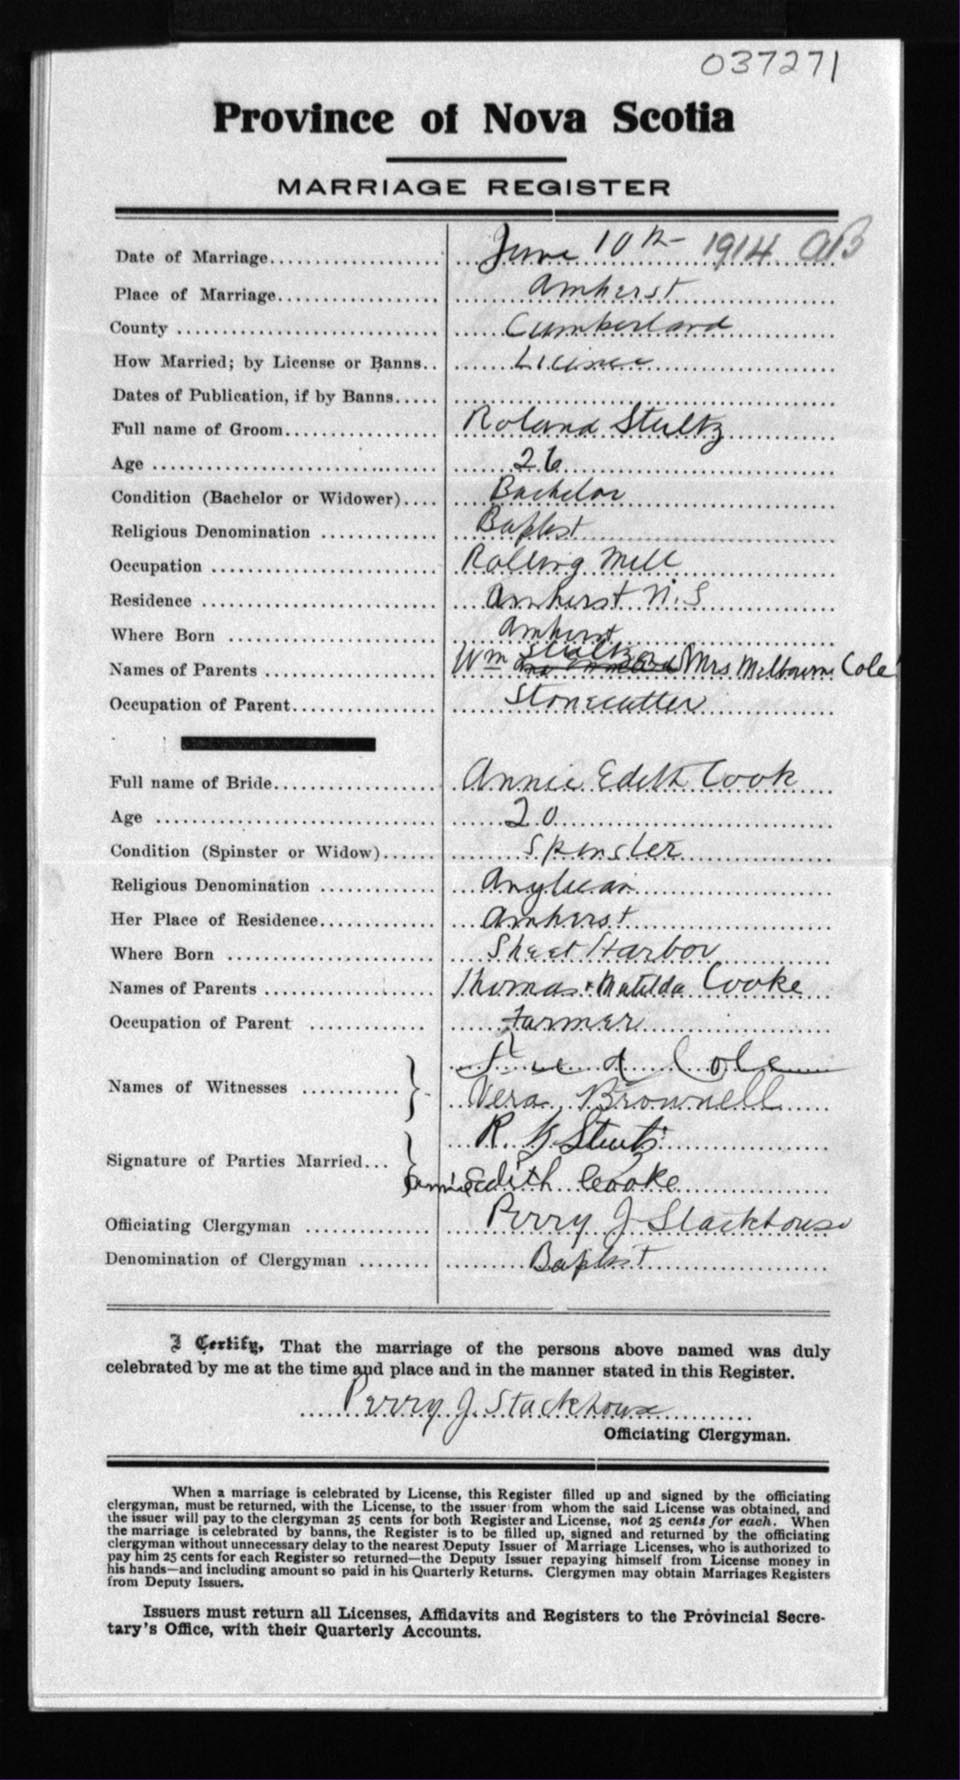 037271
Province of Nova Scotia
MARRIAGE REGISTER
Date of Marriage.................... June 10th 1914 AB
Place of Marriage................... Amherst
County ............................. Cumberland
How Married; by License or Banns.. License
Dates of Publication, if by Banns.....
Full name of Groom.................. Roland Stultz
Age ................................ 26
Condition (Bachelor or Widower).... Bachelor
Religious Denomination ............. Baptist
Occupation ......................... Rolling Mill
Residence .......................... Amherst N.S
Where Born ......................... Amherst
Names of Parents ................... Wm Stultz Mrs Melbourne Cole
Occupation of Parent................ Stonecutter
Full name of Bride.................. Annie Edith Cook
Age ................................ 20
Condition (Spinster or Widow)...... Spinster
Religious Denomination ............. Anglican
Her Place of Residence.............. Amherst
Where Born ......................... Sheet Harbor
Names of Parents ................... Thomas + Matilda Cooke
Occupation of Parent ............... Farmer
Names of Witnesses ............ Cole
Vera Brownell
Signature of Parties Married... R. Stultz
Annie Edith Cooke
Officiating Clergyman .............. Perry J. Stackhouse
Denomination of Clergyman .......... Baptist
I Certify, That the marriage of the persons above named was duly
celebrated by me at the time and place and in the manner stated in this Register.
Perry J. Stackhouse
Officiating Clergyman.
When a marriage is celebrated by License, this Register filled up and signed by the officiating
clergyman, must be returned, with the License, to the issuer from whom the said License was obtained, and
the issuer will pay to the clergyman 25 cents for both Register and License, not 25 cents for each. When
the marriage is celebrated by banns, the Register is to be filled up, signed and returned by the officiating
clergyman without unnecessary delay to the nearest Deputy Issuer of Marriage Licenses, who is authorized to
pay him 25 cents for each Register so returned—the Deputy Issuer repaying himself from License money in
his hands—and including amount so paid in his Quarterly Returns. Clergymen may obtain Marriages Registers
from Deputy Issuers.
Issuers must return all Licenses, Affidavits and Registers to the Provincial Secre-
tary's Office, with their Quarterly Accounts.